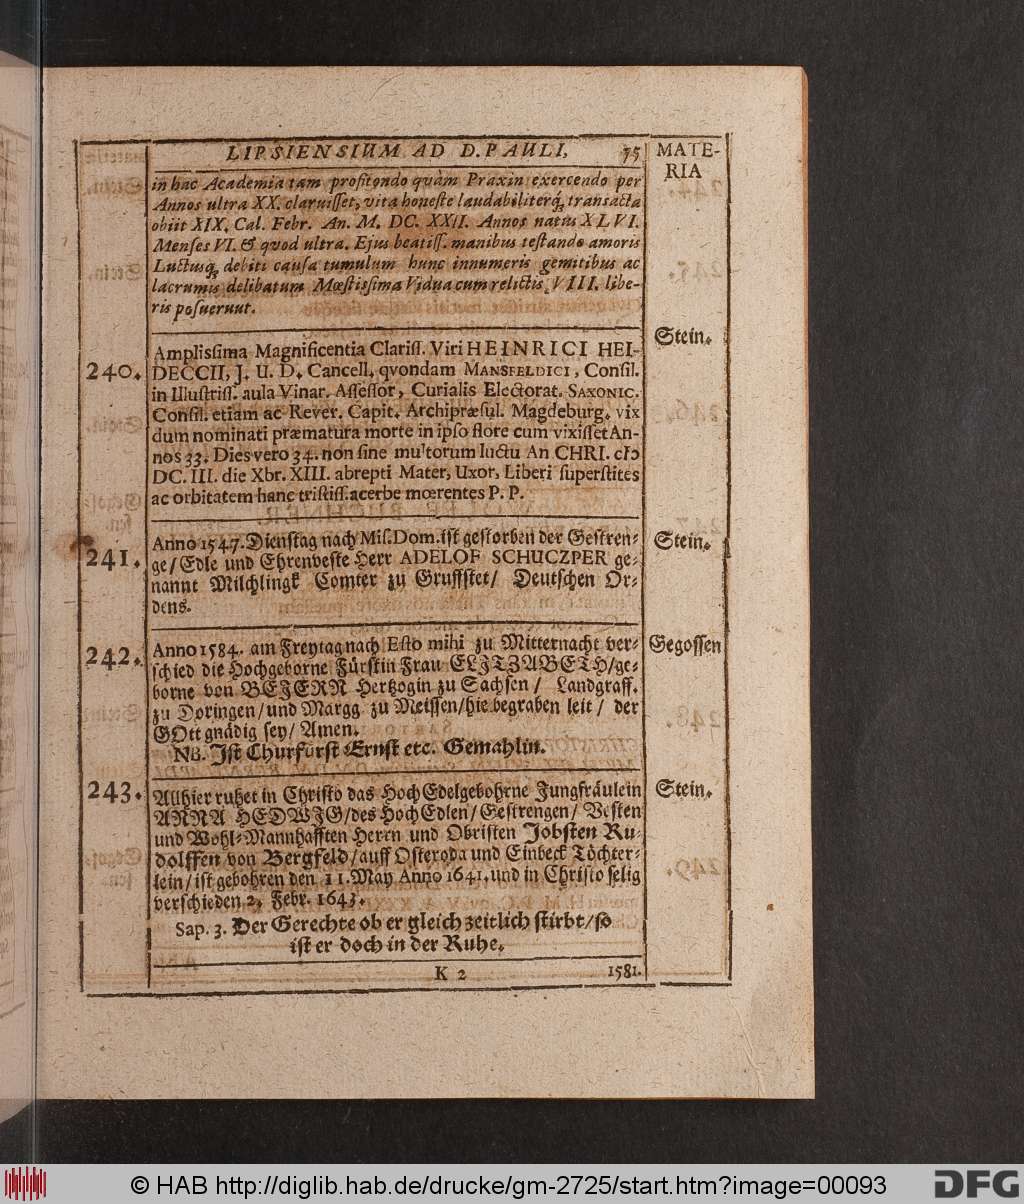 LIPSIENSIUM AD D. PAULI, 75
MATE-
RIA
in hac Academia tam profitendo quàm Praxin exercendo per
Annos ultra XX. claruisset, vita honeste laudabiliterq; transacta
obiit XIX. Cal. Febr. An. M. DC. XXII. Annos natus XLVI.
Menses VI. & quod ultra. Ejus beatiss. manibus testando amoris
Luctusq; debiti causa tumulum hunc innumeris gemitibus ac
lacrumis delibatum Mœstissima Vidua cum relictis VIII. libe-
ris posuerunt.
240. Amplissima Magnificentia Clariss. Viri HEINRICI HEI- Stein.
DECCII, J. U. D. Cancell. qvondam MANSFELDICI, Consil.
in Illustriss. aula Vinar. Assessor, Curialis Electorat. SAXONIC.
Consil. etiam ac Rever. Capit. Archipræsul. Magdeburg. vix
dum nominati præmatura morte in ipso flore cum vixisset An-
nos 33. Dies vero 34. non sine multorum luctu An CHRI. cIↃ
DC. III. die Xbr. XIII. abrepti Mater, Uxor, Liberi superstites
ac orbitatem hanc tristiss. acerbe mœrentes P. P.
241. Anno 1547. Dienstag nach Mis. Dom. ist gestorben der Gestren- Stein.
ge/ Edle und Ehrenveste Herr ADELOF SCHUCZPER ge-
nannt Milchlingk Comter zu Gruffstet/ Deutschen Or-
dens.
242. Anno 1584. am Freytag nach Esto mihi zu Mitternacht ver- Gegossen
schied die Hochgeborne Fürstin Frau ELITZABETH/ ge-
borne von BEJERN Hertzogin zu Sachsen / Landgraff.
zu Doringen/ und Margg. zu Meissen/ hie begraben leit / der
GOtt gnädig sey/ Amen.
NB. Ist Churfürst Ernst etc. Gemahlin.
243. Allhier ruhet in Christo das HochEdelgebohrne Jungfräulein Stein.
ANNA HEDWIG/ des HochEdlen/ Gestrengen/ Vesten
und Wohl-Mannhafften Heren und Obristen Jobsten Ru-
dolffen von Bergfeld/ auff Osteroda und Einbeck Töchter-
lein/ ist gebohren den 11. May Anno 1641. und in Christo selig
verschieden 2. Febr. 1643.
Sap. 3. Der Gerechte ob er gleich zeitlich stirbt/ so
ist er doch in der Ruhe.
K 2 1581.
© HAB http://diglib.hab.de/drucke/gm-2725/start.htm?image=00093
DFG